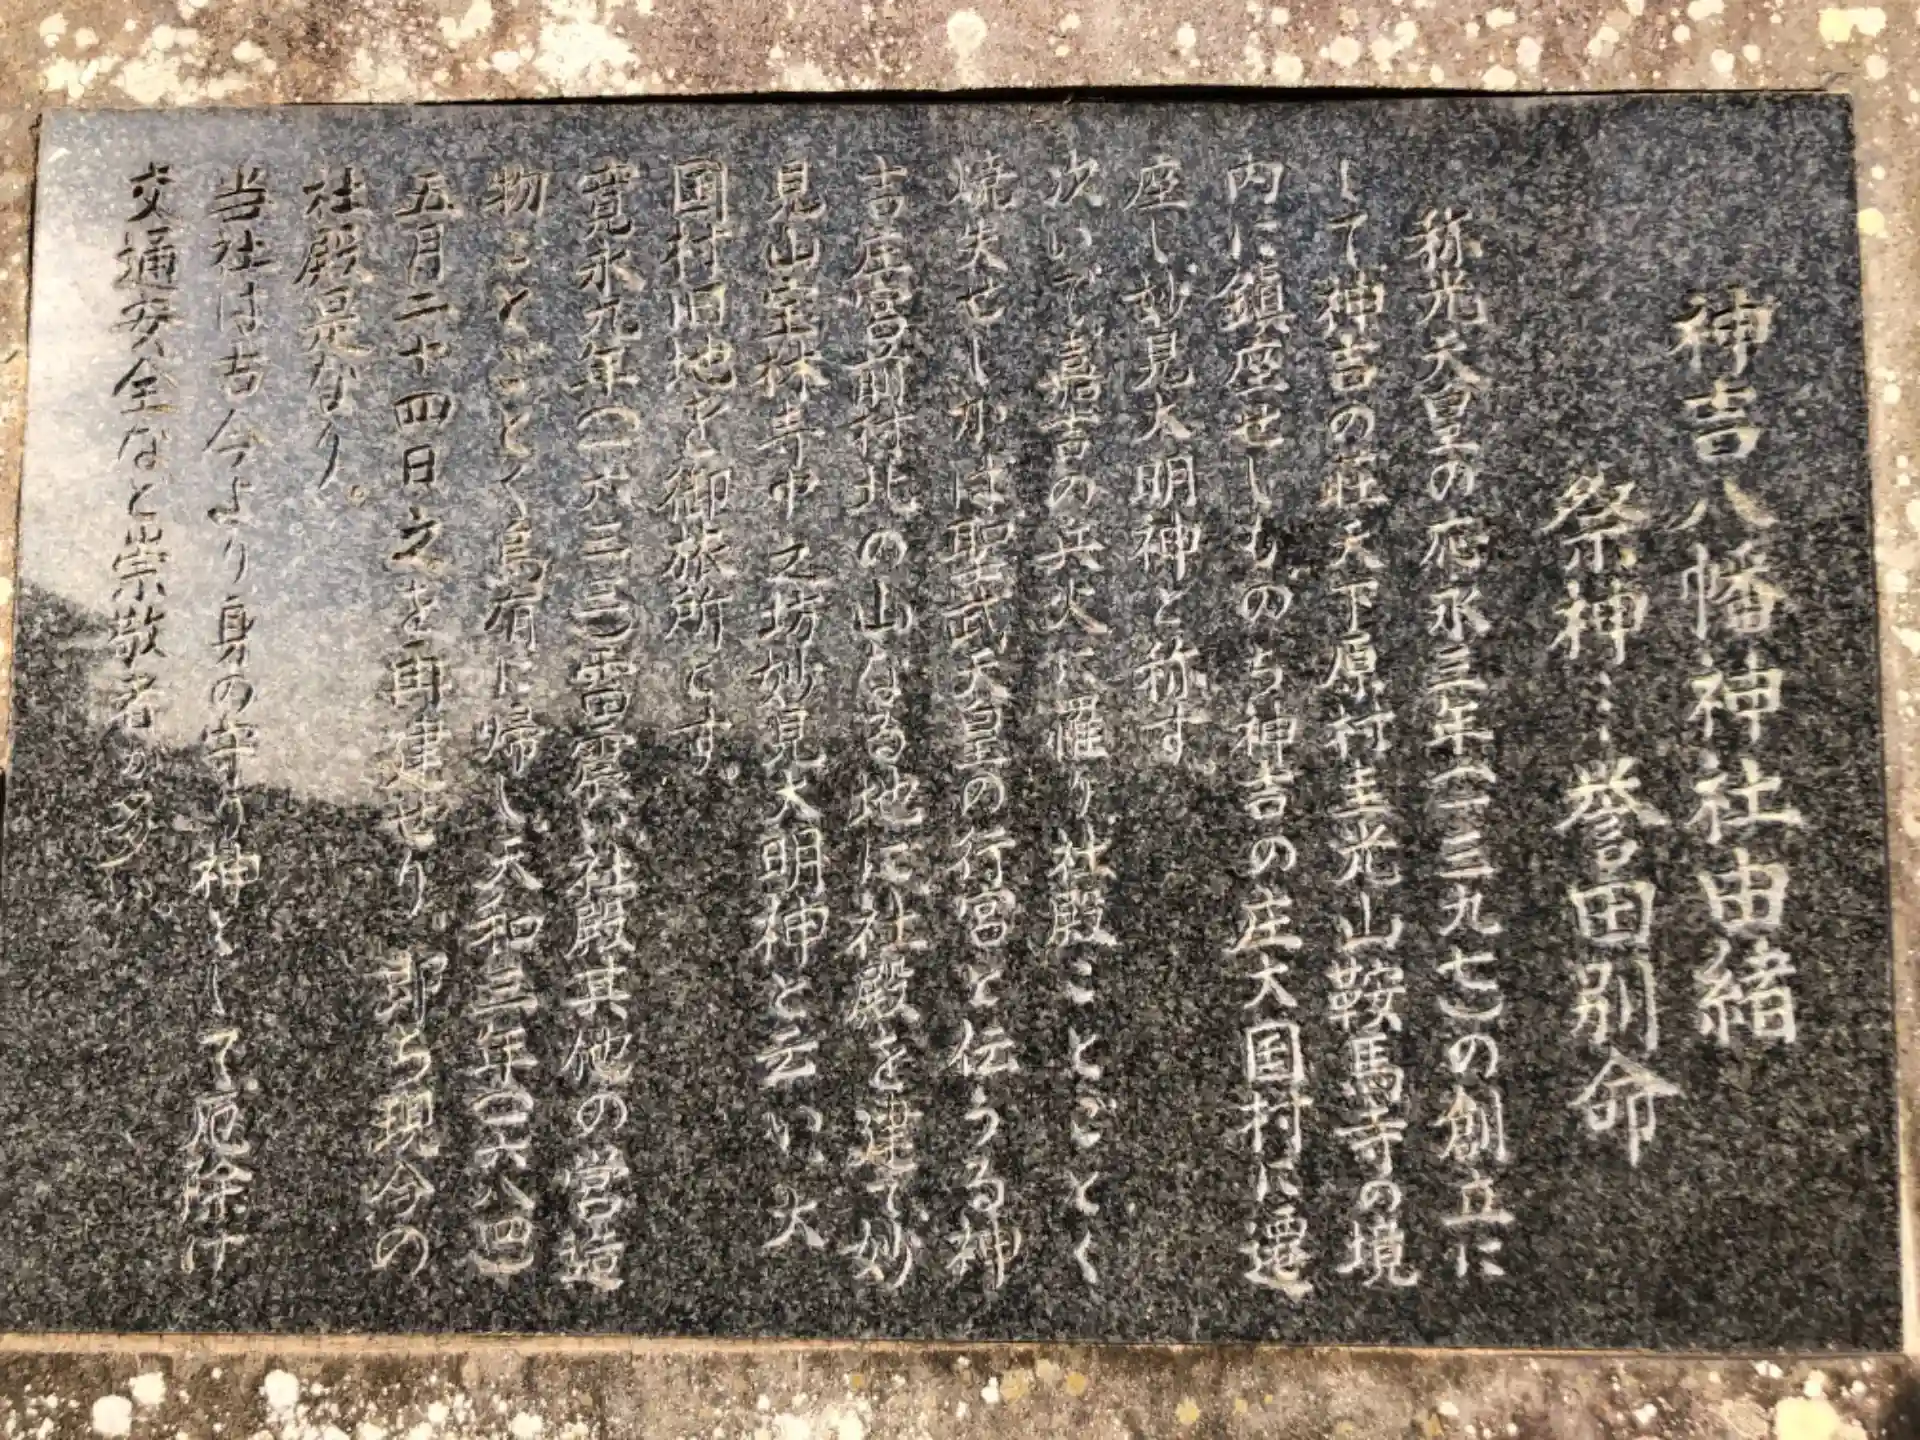 神吉八幡神社由緒
祭神…誉田別命
称光天皇の応永三年(一三九七)の創立に
して神吉の荘天下原村圭光山鞍馬寺の境
内に鎮座せしものち神吉の庄大国村に遷
座し妙見大明神と称す
次いで嘉吉の兵火に罹り社殿ことごとく
焼失せしかば聖武天皇の行宮と伝うる神
吉庄宮前村北の山なる地に社殿を建て妙
見山宝林寺中之坊妙見大明神と云い大
国村旧地を御旅所とす。
寛永九年(一六三二)雷震い社殿其他の営造
物ことごとく烏有に帰し天和三年(一六八四)
五月二十四日之を再建せり即ち現今の
社殿是なり。
当社は古今より身の守り神として厄除け
交通安全など崇敬者が多い。